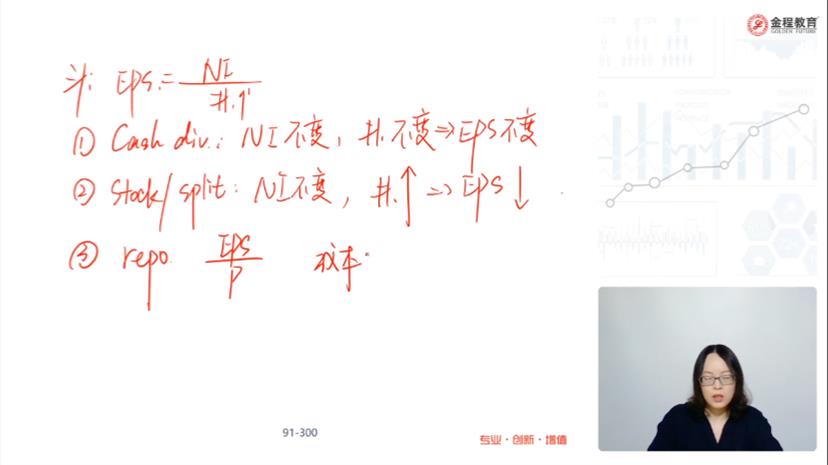 EPS = NI / #
① Cash div.: NI不变, #不变 ⇒ EPS不变
② Stock/split: NI不变, #↑ ⇒ EPS↓
③ repo. EPS / P 成本
91-300
专业·创新·增值
金程教育
GOLDEN FUTURE